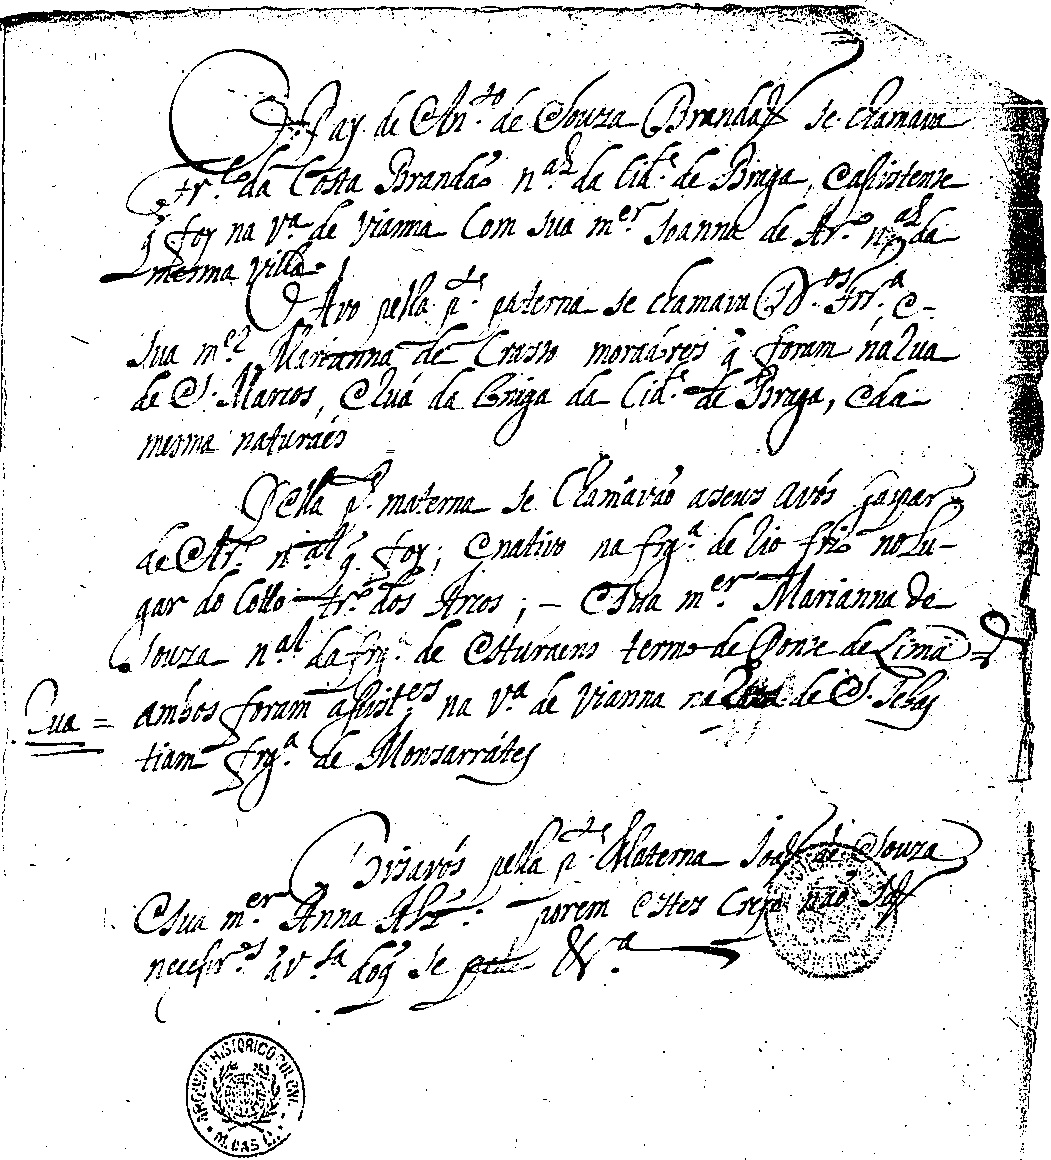 O Pay de An.to de Souza Brandaõ se chamava
da Costa Brandaõ n.al da Cid.e de Braga, e assistente
q̃ foy na V.a de Vianna Com sua m.er Joanna de Ar.o n.al da
mesma Villa.
O Avo pella p.te paterna se chamava D.os Frr.a e
sua m.er Marianna de Crasto moradores q̃ foram na Rua
de S. Marcos, e Rua da Briga da Cid.e de Braga, e da
mesma naturaes
Pella p.e materna se Chamavaõ a seus avós Gaspar
de Ar.o n.al q̃ foy, e nativo na frg.a de Rio frio no Lu-
gar do Collo tr.o dos Arcos; - e Sua m.er Marianna de
Souza n.al da frg.a de Esturaens termo de Ponte de Lima =
ambos foram assist.tes na V.a de Vianna na de S. Sebas
Rua =
tiam frg.a de Monsarrates
Bisavós pella p.te Materna Joaõ de Souza
e Sua m.er Anna Alz̃. porem estes Creyo naõ Saõ
necessr.os á v.ta do q̃ se pede &.a
ARCHIVO HISTORICO COLONIAL